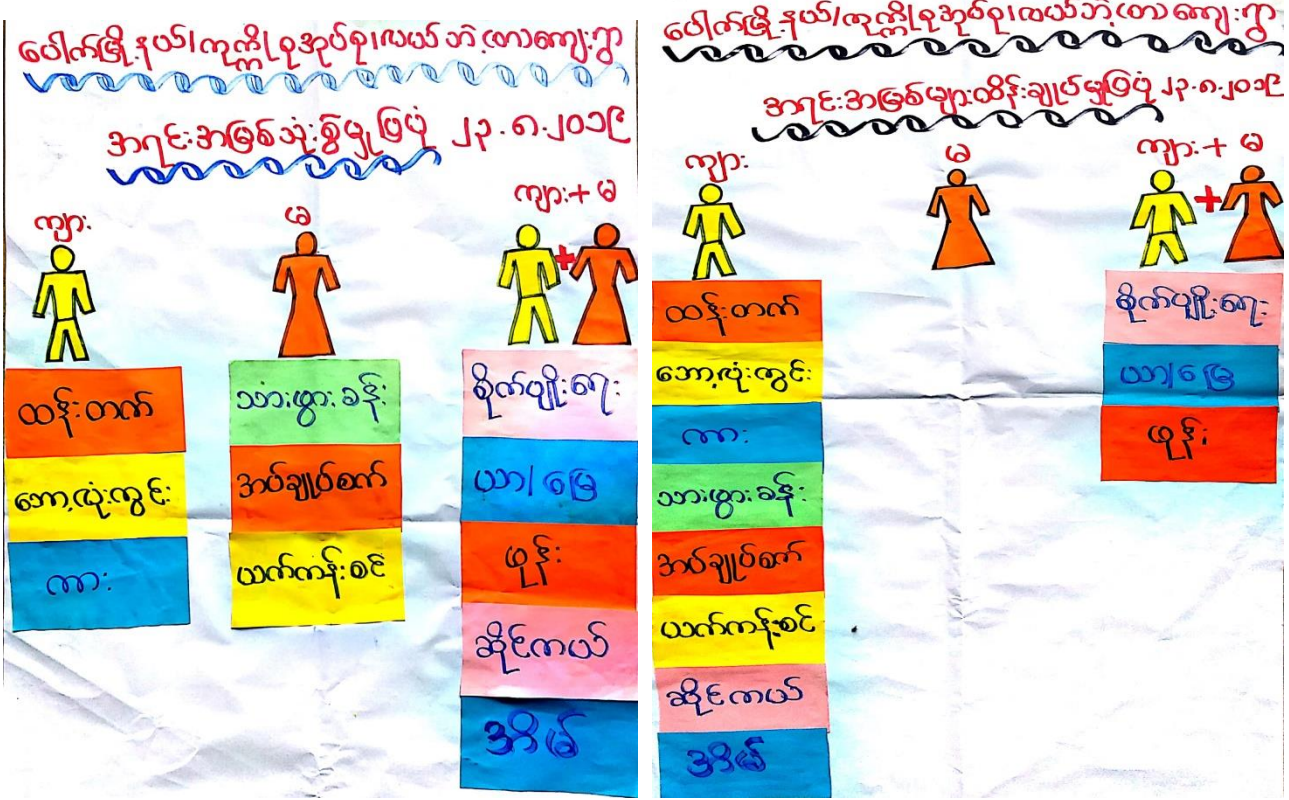 ပေါက်မြို့နယ်/ကုက္ကိုစုအုပ်စု/လယ်ဘဲ့(တာ)ကျေးရွာ
အရင်းအမြစ်သုံးစွဲမှုပြပုံ ၂၃.၈.၂၀၁၉
ကျား
မ
ကျား+မ
ထန်းတက်
ဘော့လုံးကွင်း
ကား
သားဖွားခန်း
အပ်ချုပ်စက်
ယက်ကန်းစင်
စိုက်ပျိုးရေး
ယာ/မြေ
ဖုန်း
ဆိုင်ကယ်
အိမ်
ပေါက်မြို့နယ်/ကုက္ကိုစုအုပ်စု/လယ်ဘဲ့(တာ)ကျေးရွာ
အရင်းအမြစ်များထိန်းချုပ်မှုပြပုံ ၂၃.၈.၂၀၁၉
ကျား
မ
ကျား+မ
ထန်းတက်
ဘော့လုံးကွင်း
ကား
သားဖွားခန်း
အပ်ချုပ်စက်
ယက်ကန်းစင်
ဆိုင်ကယ်
အိမ်
စိုက်ပျိုးရေး
ယာ/မြေ
ဖုန်း